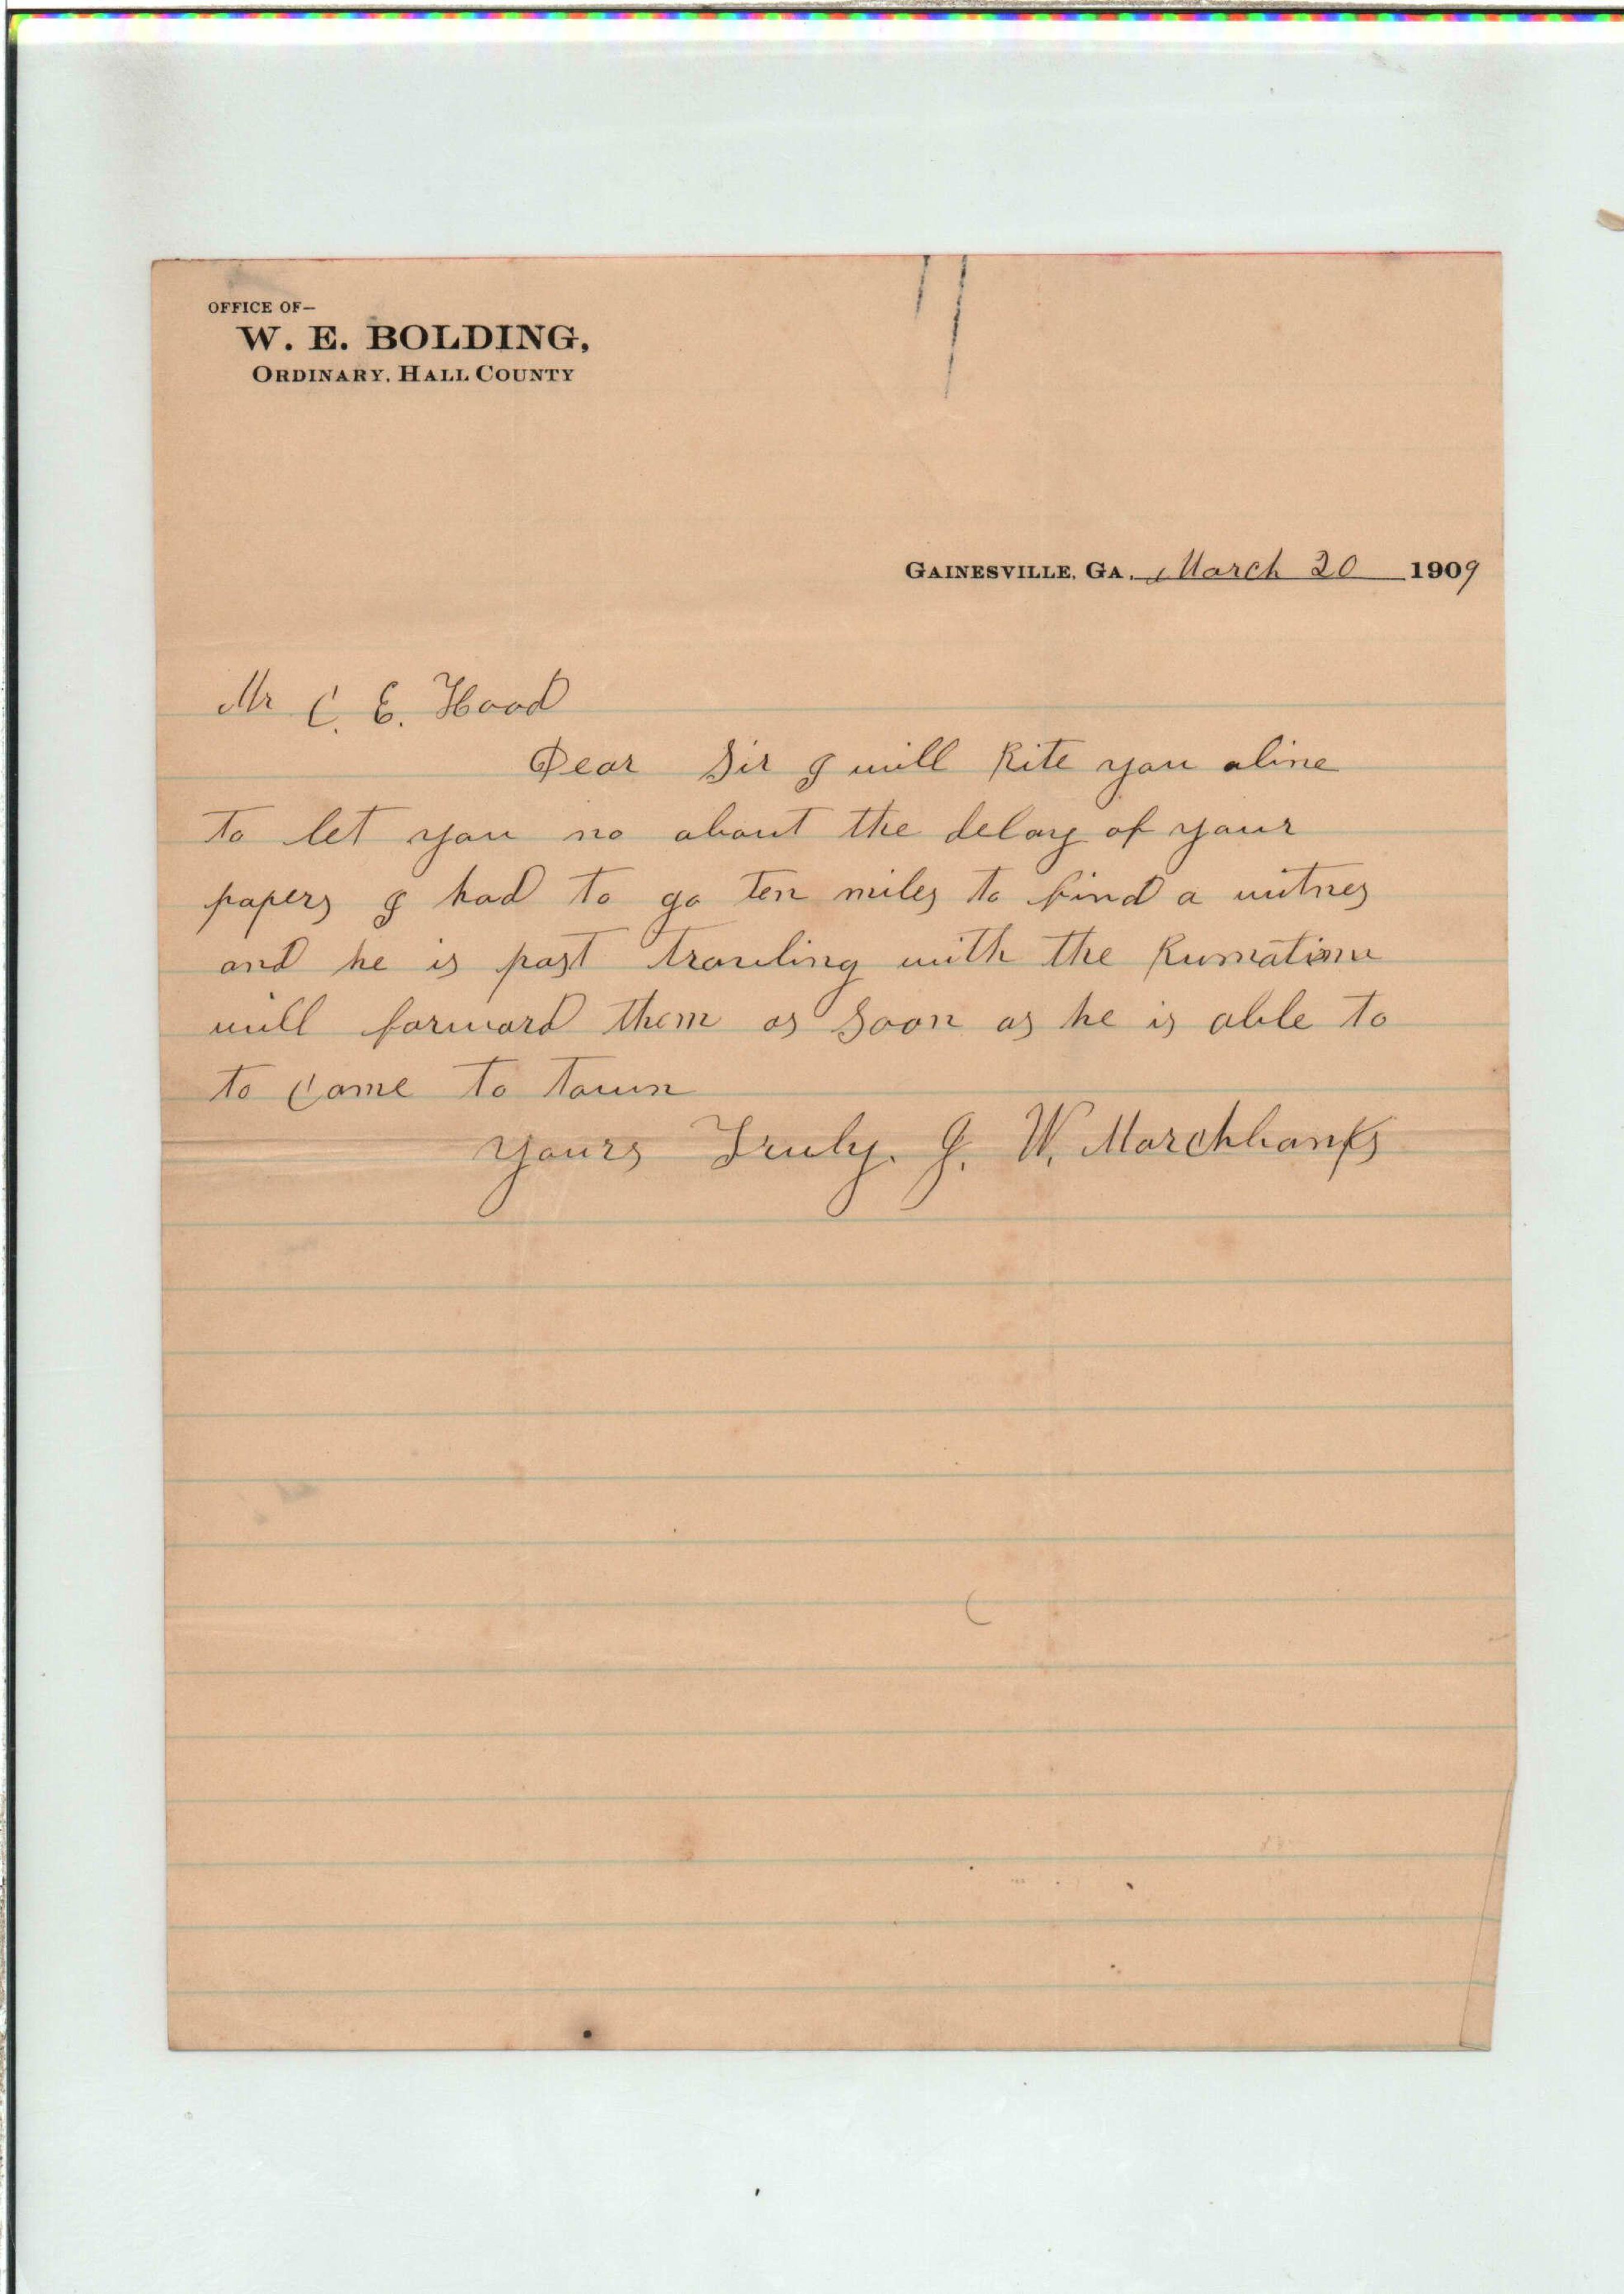 OFFICE OF—
W. E. BOLDING,
ORDINARY, HALL COUNTY
GAINESVILLE, GA. March 20 1909
Mr C. E. Hood
Dear Sir I will Rite you aline
to let you no about the delay of your
papers I had to go ten miles to find a witnes
and he is past travling with the Rumatism
will forward them as soon as he is able to
to come to town
yours Truly. J. W. Marchbanks